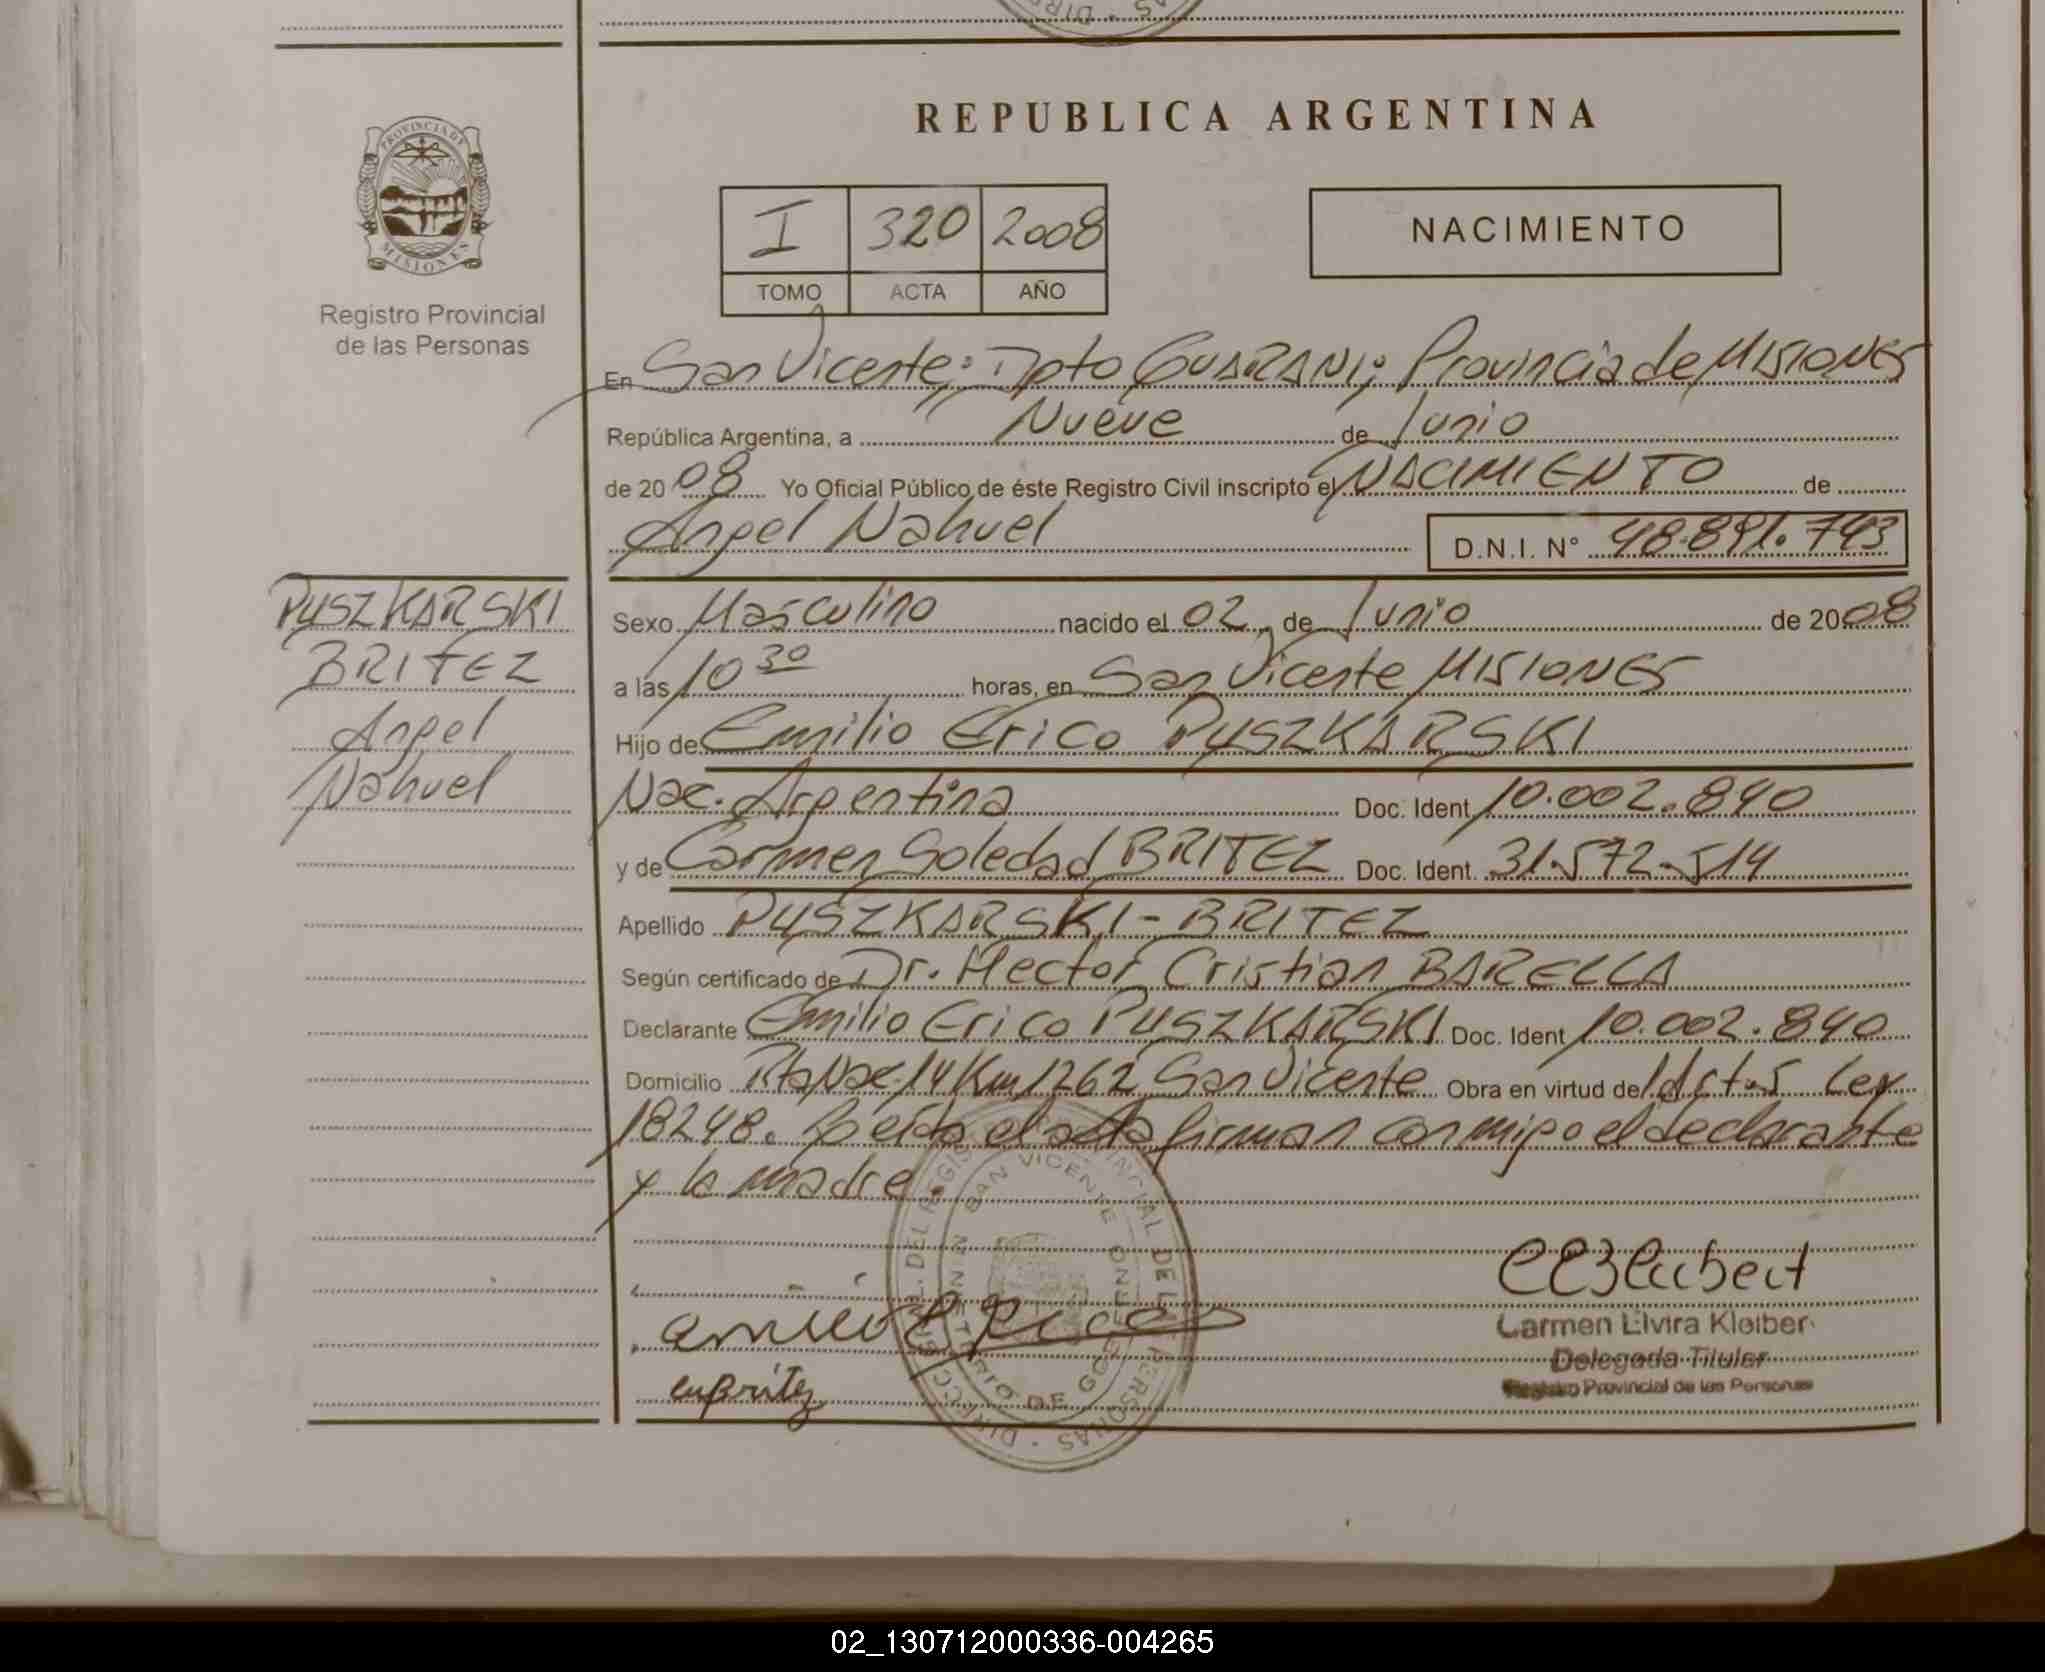 REPUBLICA ARGENTINA
PROVINCIA DE
MISIONES
Registro Provincial
de las Personas
I 320 2008
TOMO ACTA AÑO
NACIMIENTO
En San Vicente; Dpto GUARANI; Provincia de MISIONES
República Argentina, a Nueve de Junio
de 2008 Yo Oficial Público de éste Registro Civil inscripto el NACIMIENTO de
Angel Nahuel D.N.I. N° 48.891.743
PUSZKARSKI
BRITEZ
Angel
Nahuel
Sexo Masculino nacido el 02 de Junio de 2008
a las 10 30 horas, en San Vicente MISIONES
Hijo de Emilio Erico PUSZKARSKI
Nac. Argentina Doc. Ident 10.002.840
y de Carmen Soledad BRITEZ Doc. Ident. 31.572.514
Apellido PUSZKARSKI-BRITEZ
Según certificado de Dr. Hector Cristian BARELLA
Declarante Emilio Erico PUSZKARSKI Doc. Ident 10.002.840
Domicilio Rta Nac 14 Km 1262 San Vicente Obra en virtud del dct-5 Ley
18248. Leída el acta firman conmigo el declarante
y la madre.
SAN VICENTE
MINISTERIO DE GOBIERNO
Carmen Elvira Kleiber
Delegada Titular
Registro Provincial de las Personas
02_130712000336-004265